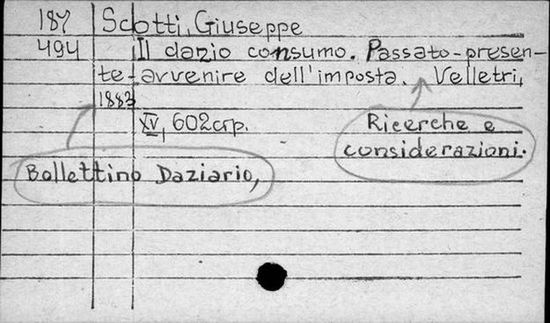 187 Scotti, Giuseppe
494 Il dazio consumo. Passato-presen-
te-avvenire dell'imposta. Velletri,
1883
XV, 602crp.
Ricerche e
considerazioni.
Bollettino Daziario,